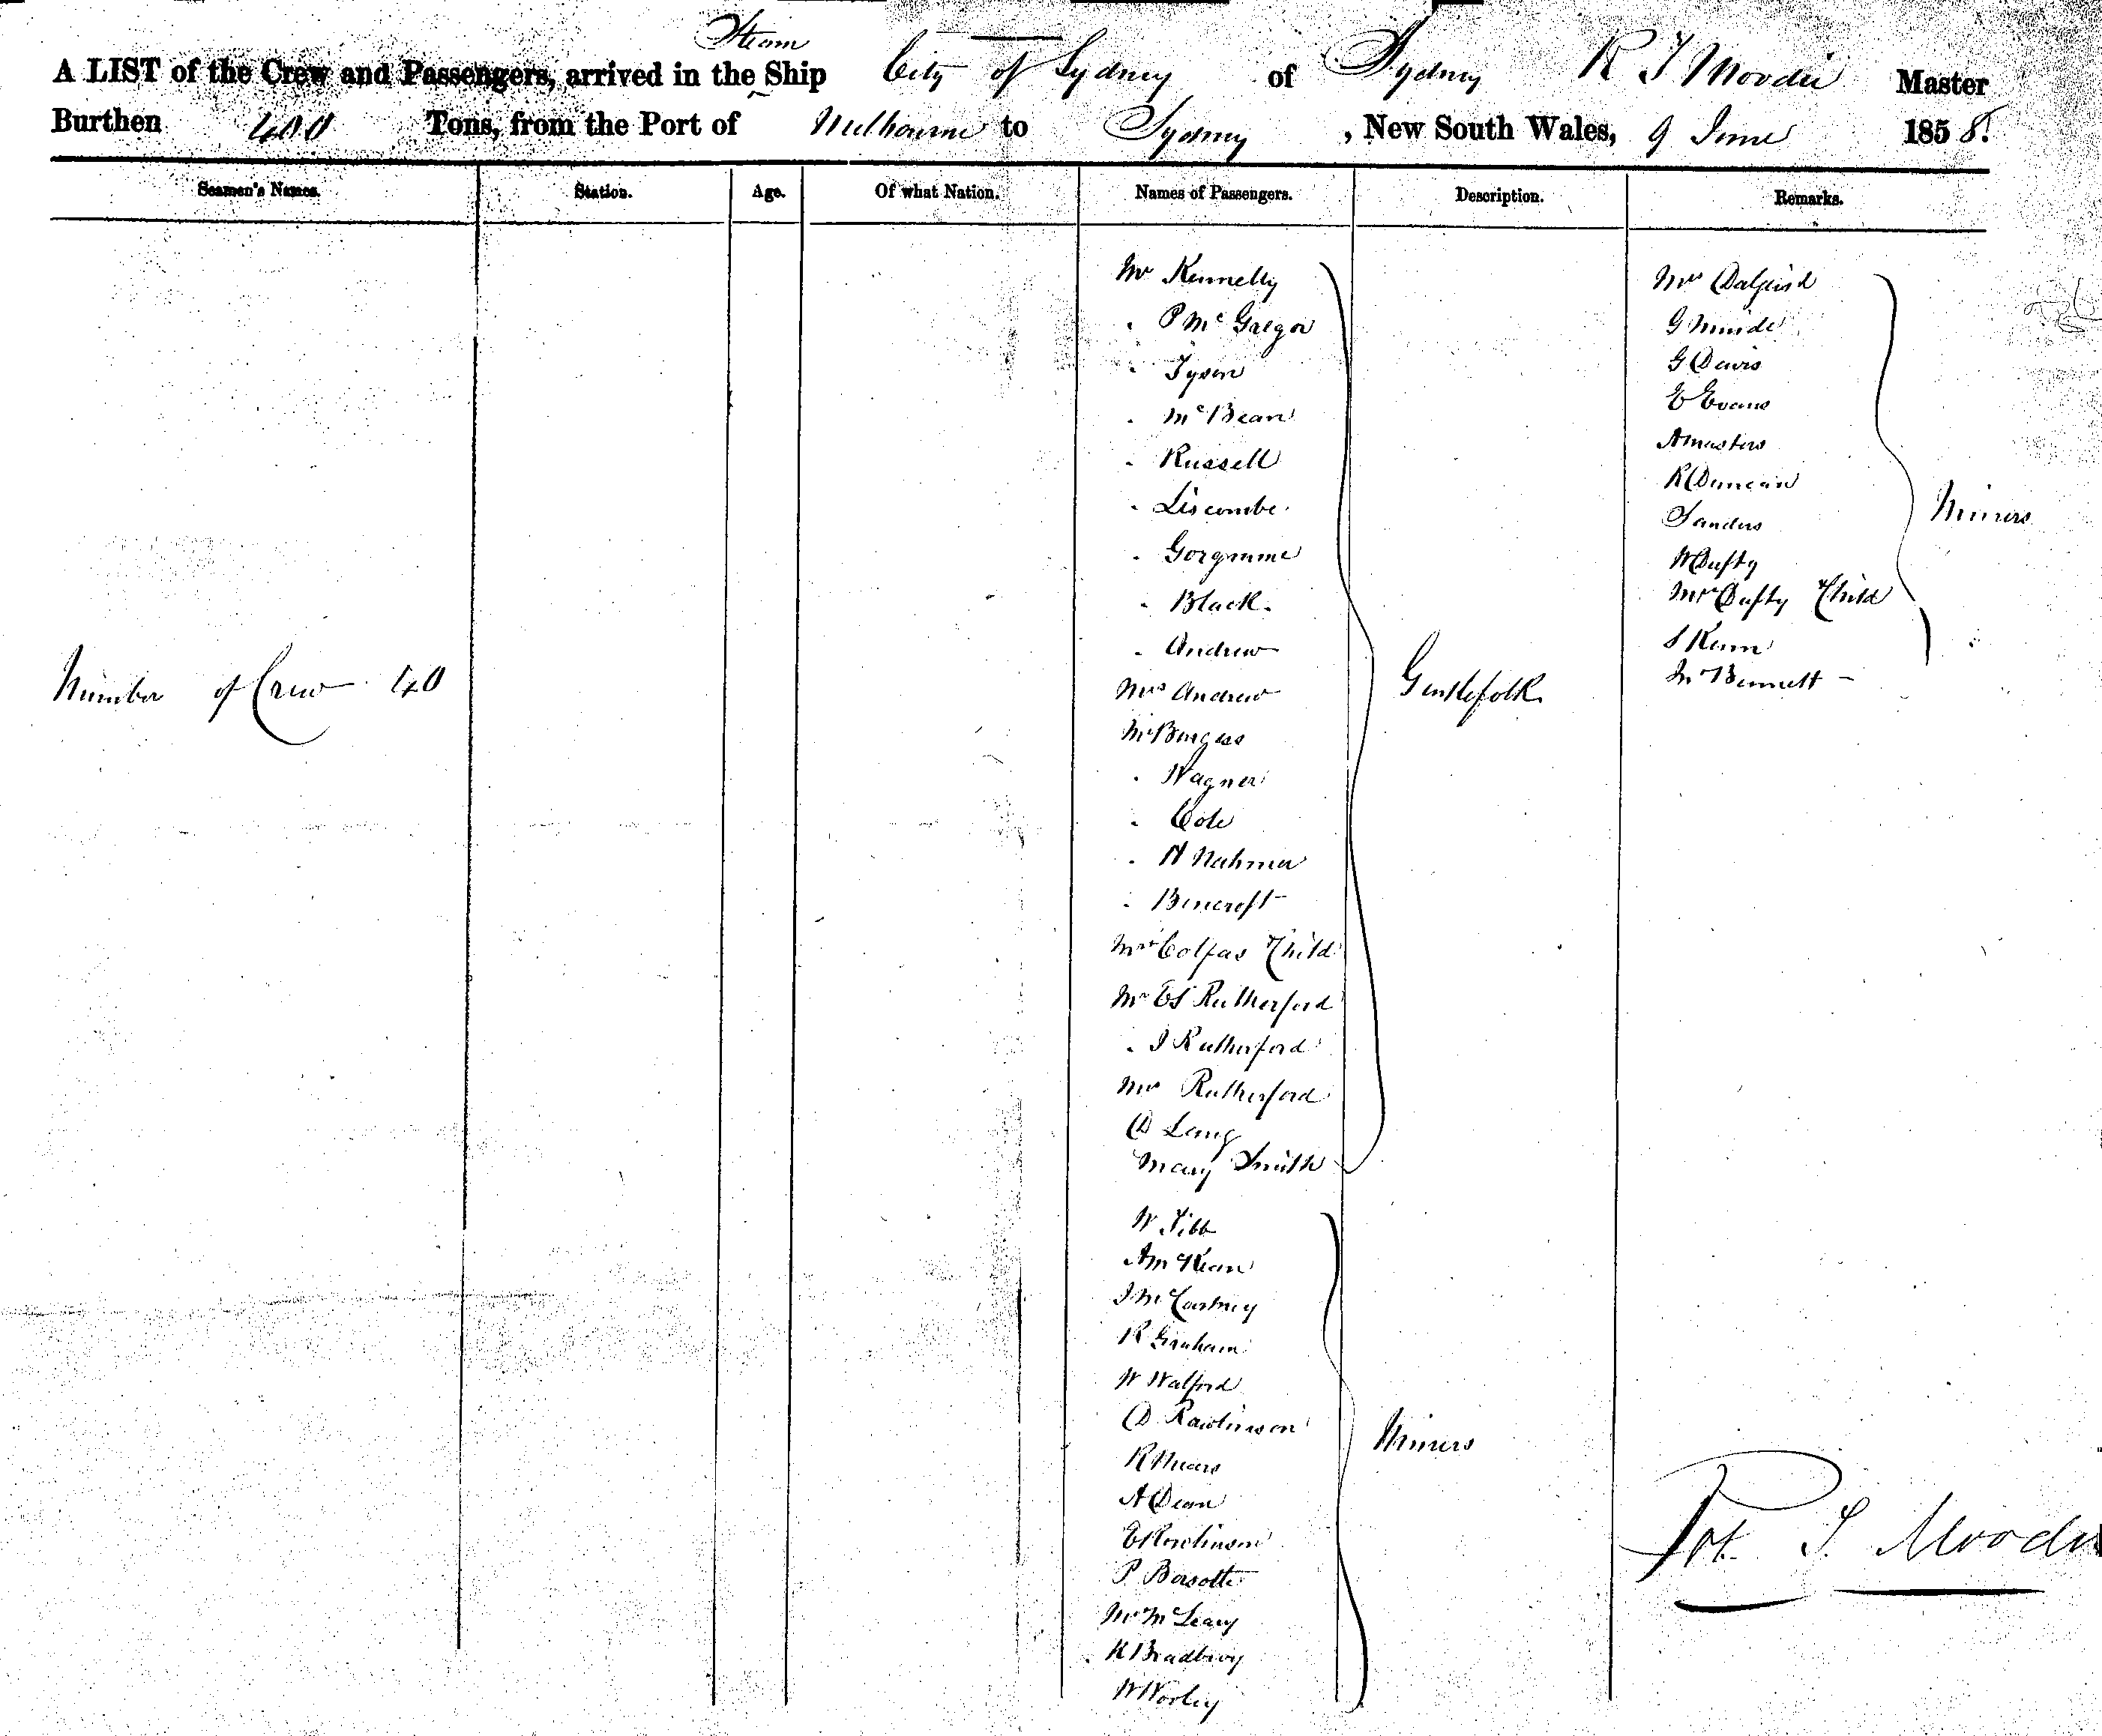 Steam
A LIST of the Crew and Passengers, arrived in the Ship City of Sydney of Sydney R T Moodie Master
Burthen 400 Tons, from the Port of Melbourne to Sydney, New South Wales, 9 June 1858.
Seamen's Names. Station. Age. Of what Nation. Names of Passengers. Description. Remarks.
Number of Crew 40
Mr Kennelly
" P McGregor
" Tyson
" McBean
" Russell
" Liscombe
" Black
" Andrew
Mrs Andrew
Mr Burgess
" Wagner
" Cole
" Bencroft
Child
Mr ES Rutherford
" J Rutherford
Mrs Rutherford
D Lang
Mary Smith
Gentlefolk
W Tibb
A McKean
J McCartney
R Graham
W Walford
D Rawlinson
R Mears
A Dean
E Rawlinson
P
Mr McLeary
R Bradbury
W Worley
Miners
Mrs
G
G Davis
E Evans
A Masters
R Duncan
Sanders
W Dufty
Mrs Dufty Child
S
Mr Bennett
Miners
Rt. T. Moodie